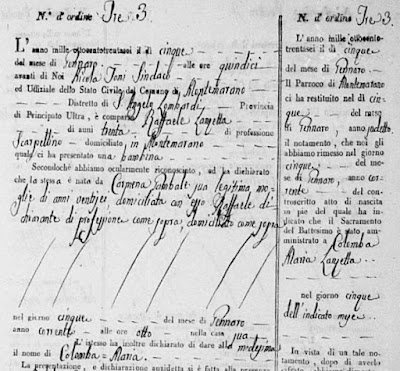 N.º d'ordine Tre 3.
L'anno mille ottocentotrentasei il dì cinque
del mese di Gennaro alle ore quindici
avanti di Noi Nicola Toni Sindaco
ed Uffiziale dello Stato Civile del Comune di Montemarano
Distretto di S. Angelo Lombardi Provincia
di Principato Ultra, è comparso Raffaele Lanzetta
di anni trenta di professione
Scarpellino domiciliato in Montemarano
quale ci ha presentato una bambina
Secondochè abbiamo ocularmente riconosciuto, ed ha dichiarato
che la stessa è nata da Carmena Gambale sua legitima mo-
glie di anni ventisei, domiciliata con esso Raffaele di-
chiarante di professione come sopra, domiciliato come sopra
nel giorno cinque del mese di Gennaro
anno corrente alle ore otto nella casa sua
L'istesso ha inoltre dichiarato di dare alla medesima
il nome di Colomba = Maria.
La presentazione, e dichiarazione anzidetta si è fatta alla presenza
N.º d'ordine Tre 3.
L'anno mille ottocento-
trentasei il dì cinque
del mese di Gennaro
Il Parroco di Montemarano
ci ha restituito nel dì cin-
que del
Gennaro, anno
il notamento, che noi gli
abbiamo rimesso nel giorno
cinque del me-
se di Gennaro, anno cor-
rente del con-
troscritto atto di nascita
in piè del quale ha in-
dicato che il Sacramento
del Battesimo è stato am-
ministrato a Colomba
Maria Lanzetta
nel giorno cinque
dell'indicato mese.
In vista di un tale no-
tamento, dopo di averlo